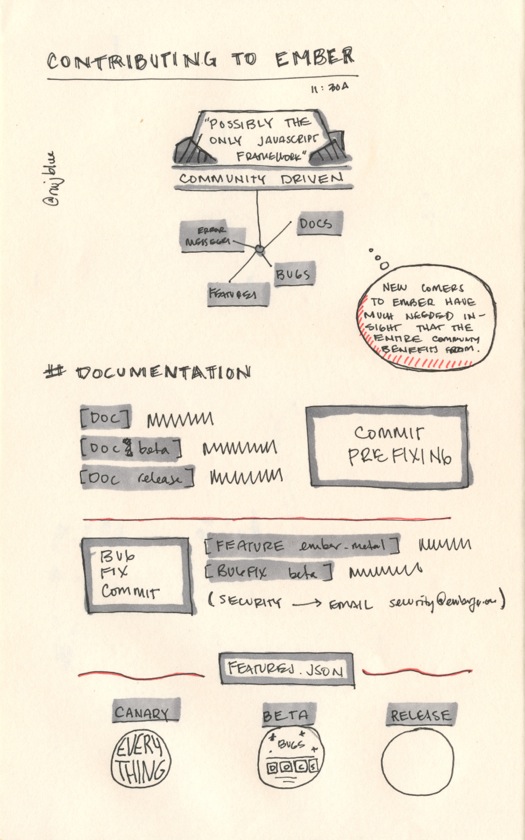 CONTRIBUTING TO EMBER
11:30A
"POSSIBLY THE
ONLY JAVASCRIPT
FRAMEWORK"
COMMUNITY DRIVEN
ERROR
MESSAGES
DOCS
BUGS
FEATURES
NEW COMERS
TO EMBER HAVE
MUCH NEEDED IN-
SIGHT THAT THE
ENTIRE COMMUNITY
BENEFITS FROM.
# DOCUMENTATION
[DOC]
[DOC beta]
[DOC release]
COMMIT
PREFIXING
BUG
FIX
COMMIT
[FEATURE ember-metal]
[BUGFIX beta]
(SECURITY → EMAIL
FEATURES.JSON
CANARY
BETA
RELEASE
EVERY
THING
+ BUGS +
DOCS